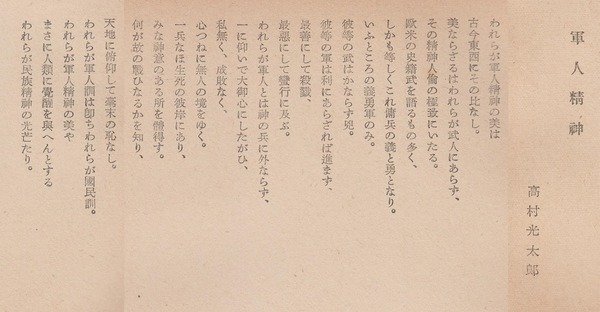 軍人精神
高村光太郎
われらが軍人精神の美は
古今東西にその比なし。
美ならざるはわれらが武人にあらず、
その精神人倫の極致にいたる。
欧米の史緒武を語るもの多く、
しかも等しくこれ傭兵の義と勇となり。
いふところの義勇軍のみ。
彼等の武はかならず兇。
彼等の軍は利にあらざれば進まず、
最善にして殺戮、
最悪にして蠻行に及ぶ。
われらが軍人とは神の兵に外ならず、
一に仰いで大御心にしたがひ、
私無く、成敗なく、
心つねに無人の境をゆく。
一兵なほ生死の彼岸にあり、
みな神意のある所を體得す。
何が故の戰ひたるかを知り、
天地に俯仰して毫末の恥なし。
われらが軍人訓は卽ちわれらが國民訓。
われらが軍人精神の美や
まさに人類に覺醒を與へんとする
われらが民族精神の光芒たり。